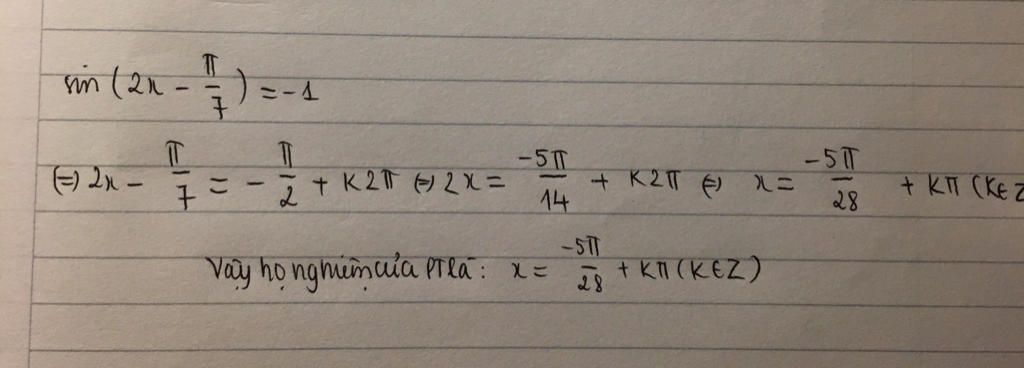 sin (2x - π/7) = -1
(=) 2x - π/7 = - π/2 + K2π (=) 2x = -5π/14 + K2π (=) x = -5π/28 + Kπ (K∈Z
Vậy họ nghiệm của PT là: x = -5π/28 + Kπ (K∈Z)